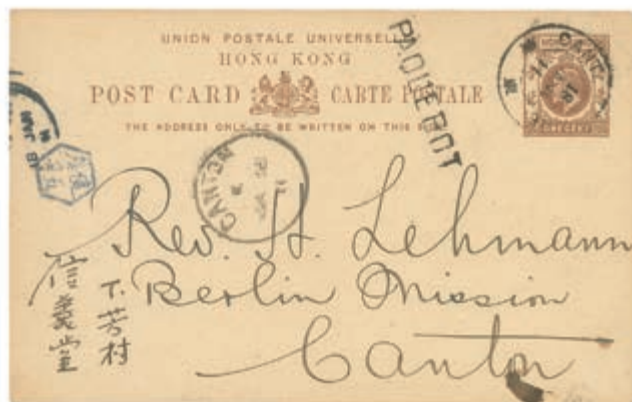 UNION POSTALE UNIVERSELLE
HONG KONG
POST CARD CARTE POSTALE
THE ADDRESS ONLY TO BE WRITTEN ON THIS SIDE
PAQUEBOT
ONE CENT
18 JAN
CANTON
Rev. H. Lehmann
Berlin Mission
Canton
下芳村
信義堂